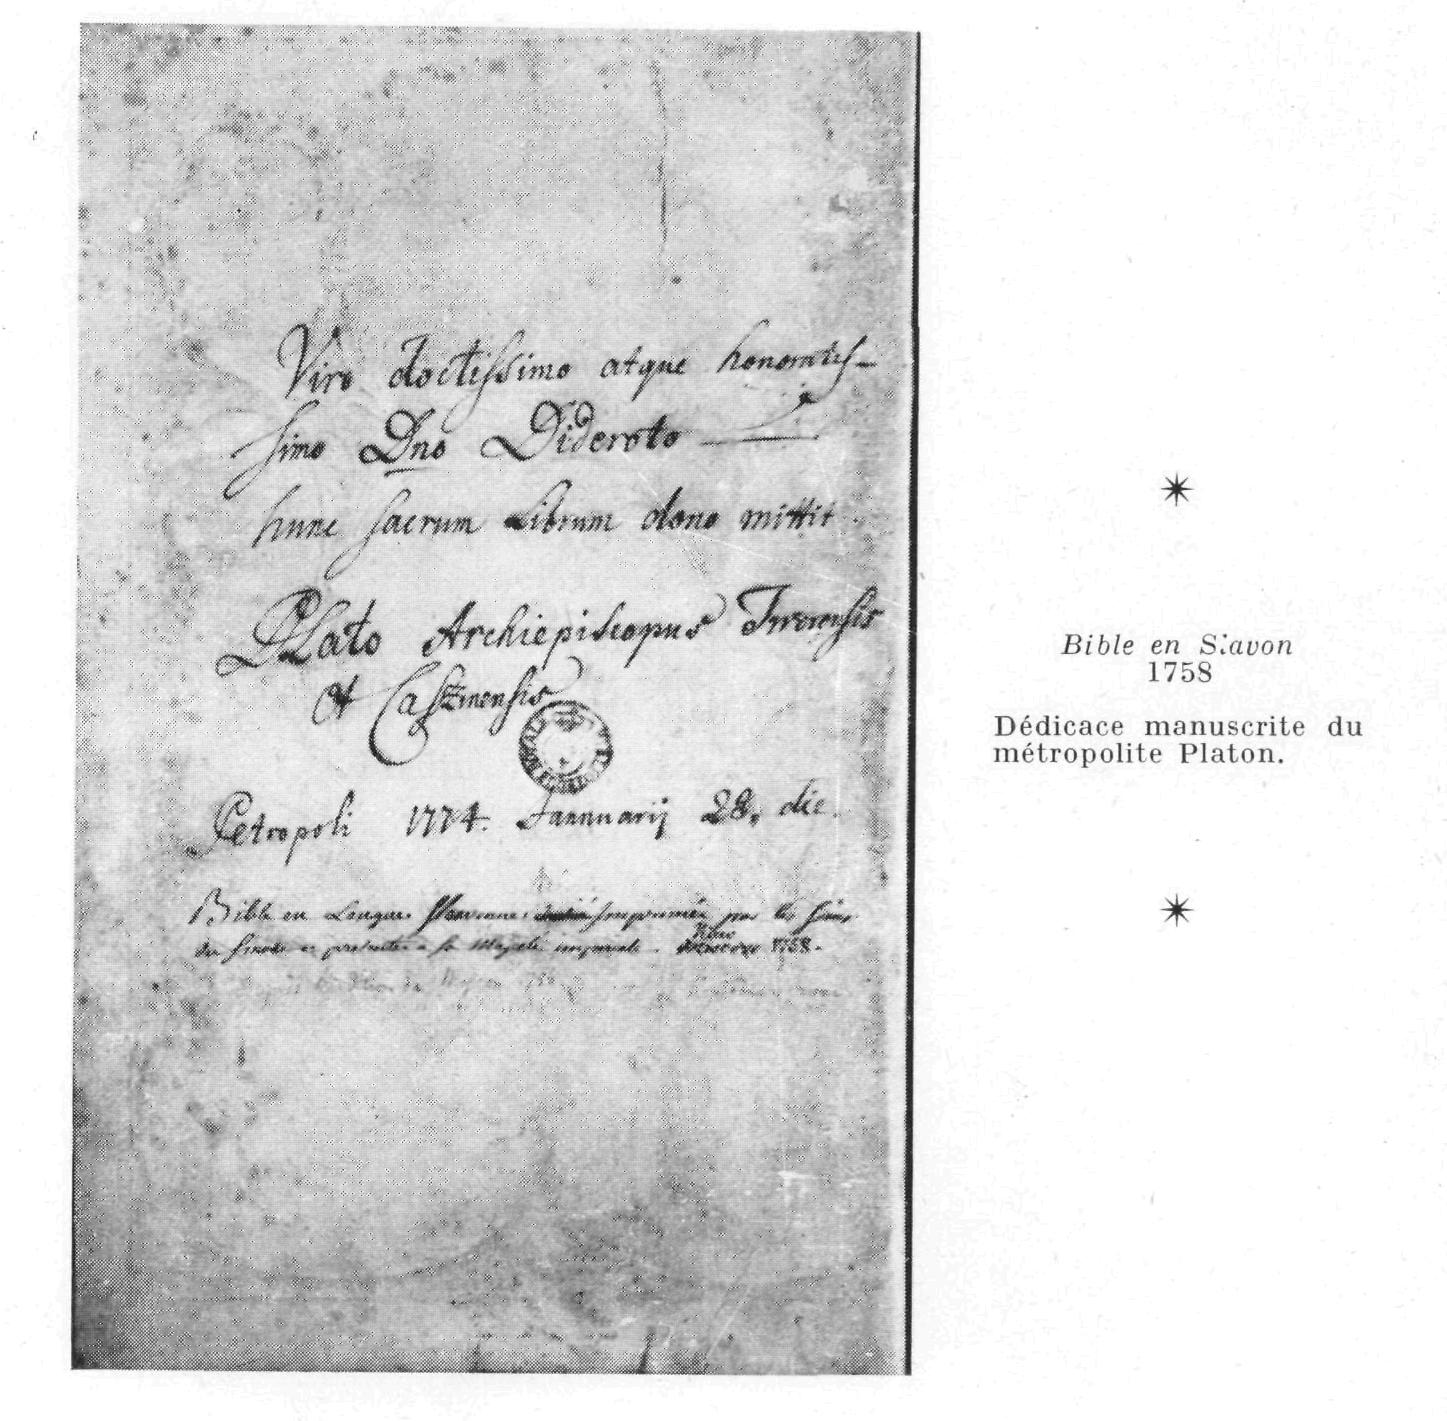 Viro doctissimo atque honoratis-
simo Dno Dideroto
hunc sacrum Librum dono mittit
Plato Archiepiscopus Twerensis
et Caszinensis
Petropoli 1774. Januarij 28. die.
Bible en Langue Slavonne imprimée par les soins
du Sinode et présentée a sa Majesté imperiale. 1758.
Bible en Slavon
1758
Dédicace manuscrite du
métropolite Platon.